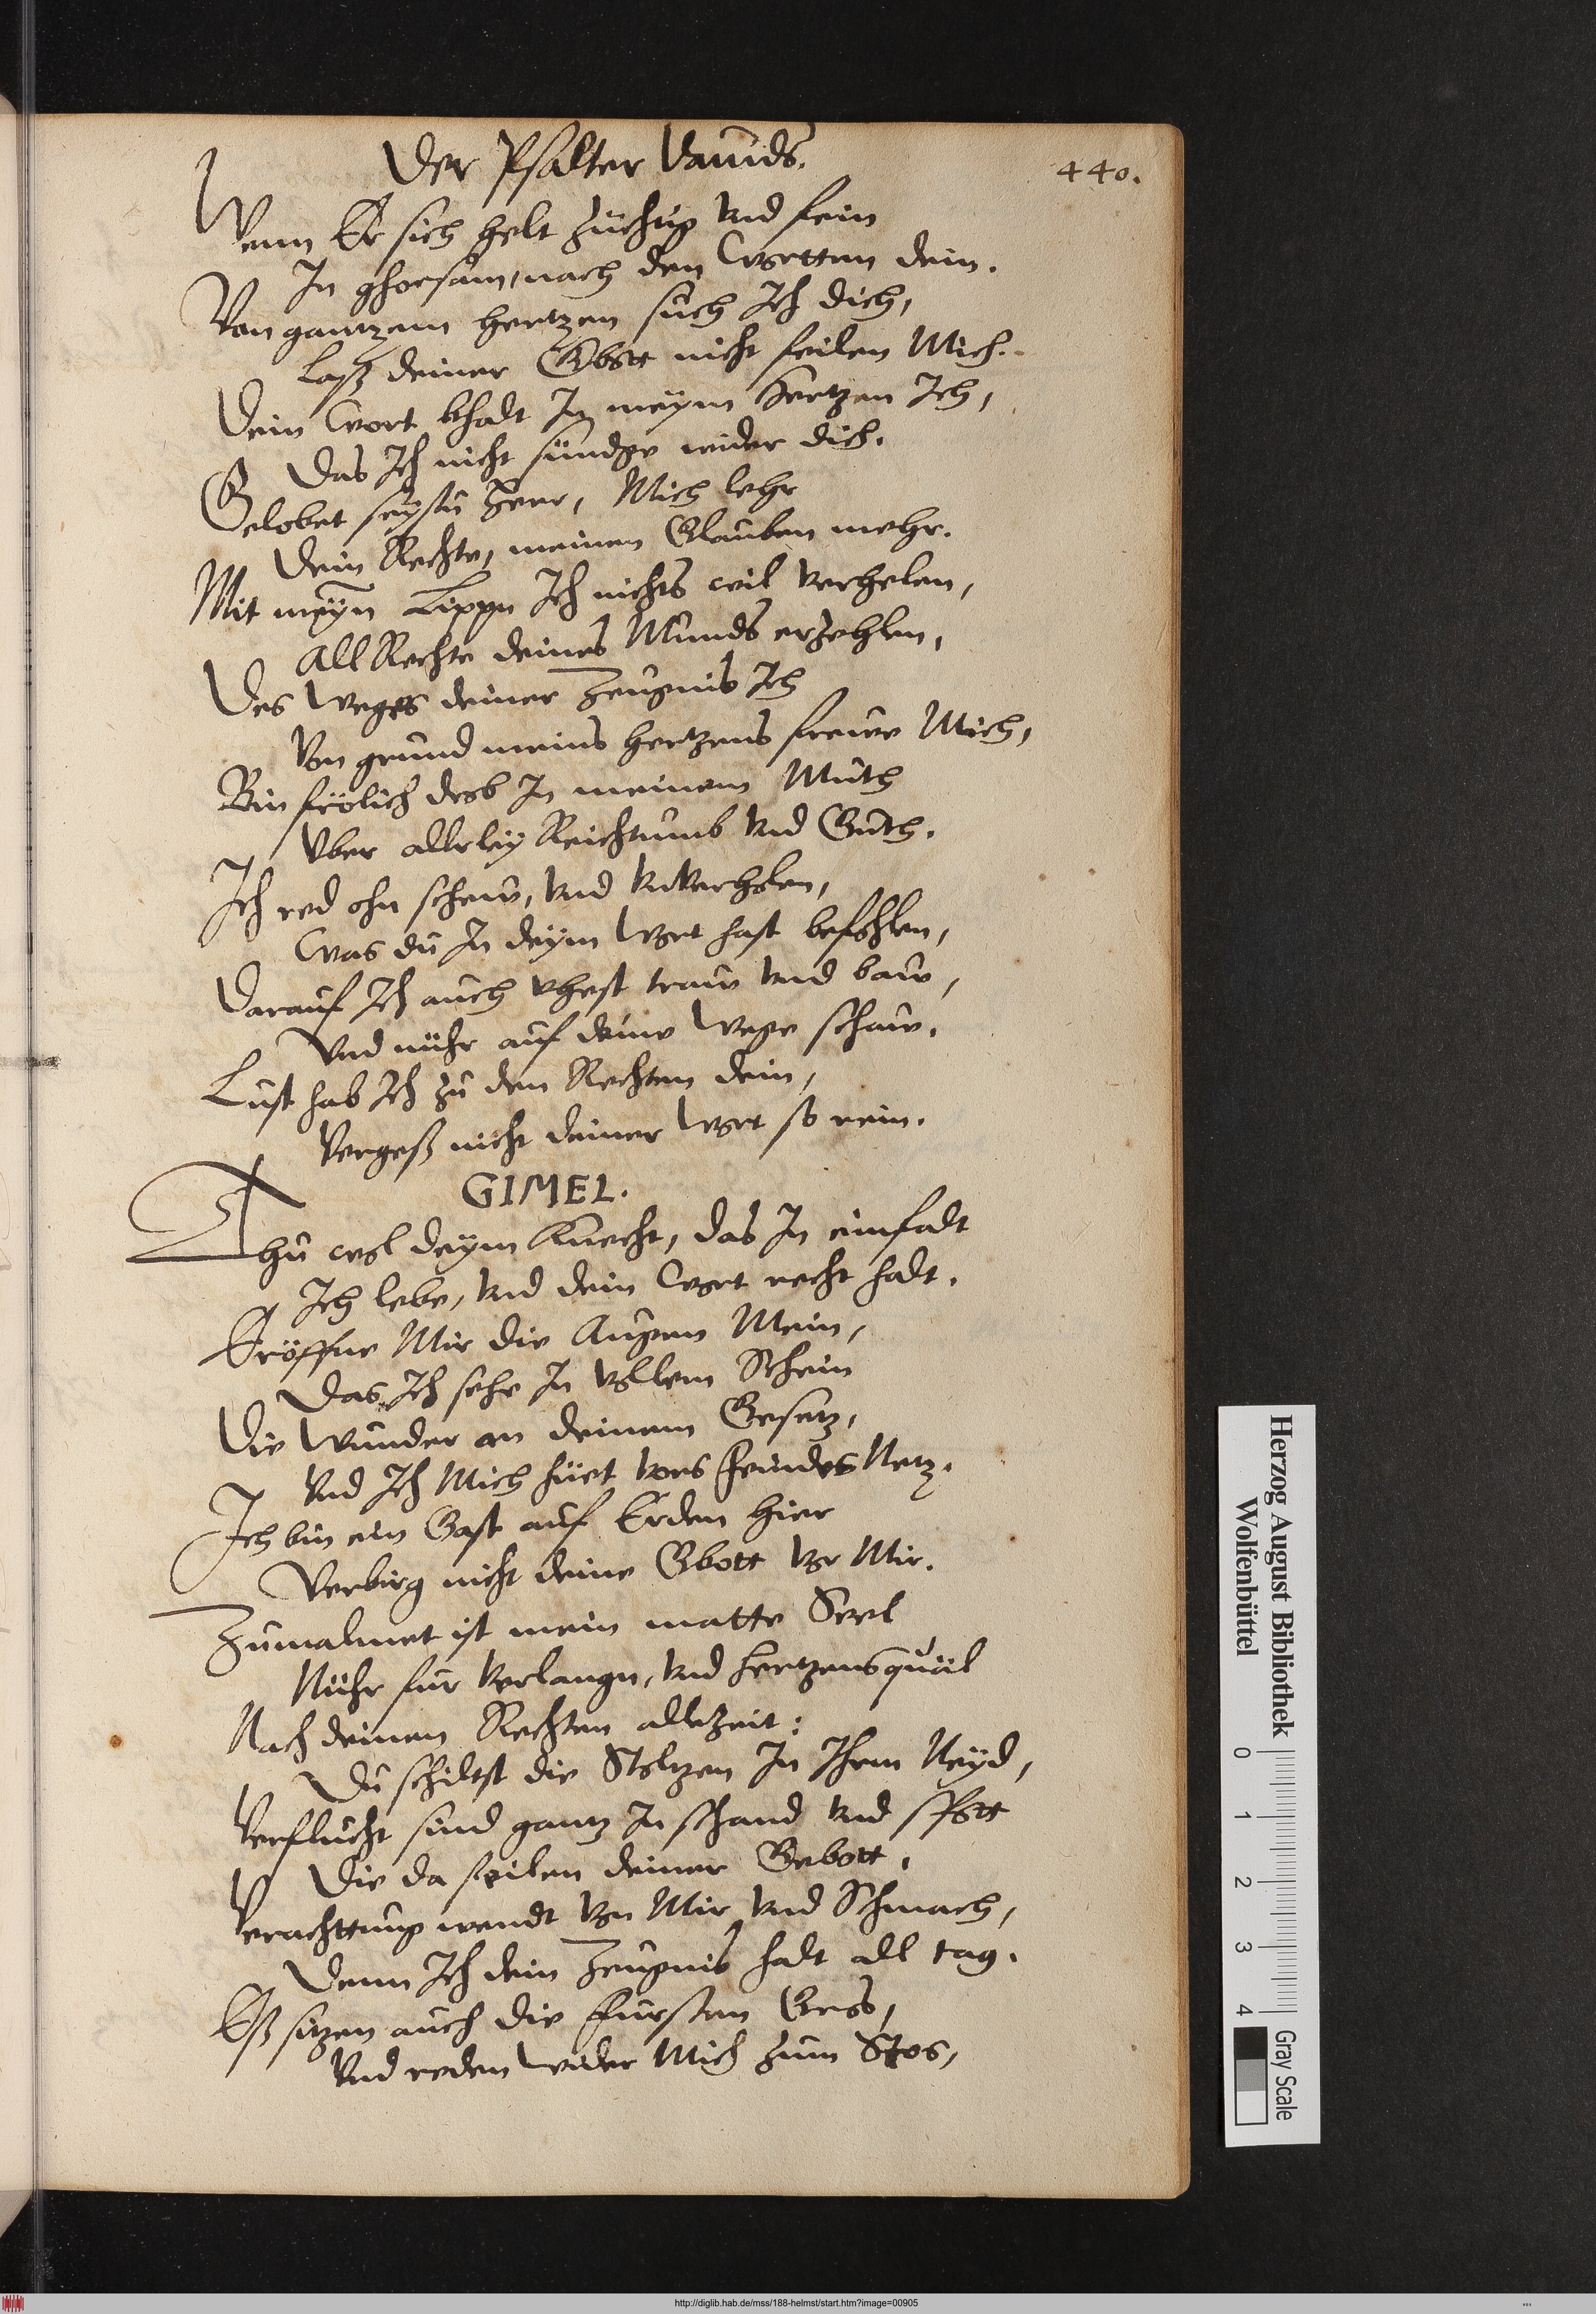 Der Psalter Dauids.
440.
Wenn Er sich helt züchtig vnd fein
In ghorsam, nach den Wortten dein.
Von gantzem hertzen such Ich dich,
Laß deiner Gbott nicht feilen Mich.
Dein Wort bhalt In meym Hertzen Ich,
Das Ich nicht sündge wider dich.
Gelobet seystu Herr, Mich lehr
Dein Rechte, meinen Glauben mehr.
Mit meyn Lippn Ich nichts wil verhelen,
All Rechte deines Munds erzehlen,
Des Weges deiner Zeugnis Ich
Von grund meins hertzens frewe Mich,
Bin frölich desb In meinem Muth
Vber allrley Reichtumb vnd Guth.
Ich red ohn schew, vnd vnverholen,
Was du In deym Wort hast befohlen,
Darauf Ich auch vhest traw vnd baw,
Vnd nühr auf deine Wege schaw.
Lust hab Ich zu den Rechten dein,
Vergeß nicht deiner Wort so rein.
GIMEL.
Thu wol deym Knecht, das In einfalt
Ich lebe, vnd dein Wort recht halt.
Eröffne Mir die Augen Mein,
Das Ich sehe In vollem Schein
Die Wunder an deinem Gesetz,
Vnd Ich Mich hüet vors feindes Netz.
Ich bin ein Gast auf Erden hier
Verbirg nicht deine Gbott vor Mir.
Zumalmet ist mein matte Seel
Nühr für verlangn, vnd hertzensquäl
Nach deinen Rechten allezeit:
Du schiltst die Stoltzen In Ihrm Neyd,
Verflucht sind gantz In schand vnd spott
Die da feilen deiner Gebott.
Verachttung wendt von Mir vnd Schmach,
Denn Ich dein Zeugnis halt all tag.
Eß sitzen auch die fursten Gros,
Vnd reden wider Mich zum Stos,
Herzog August Bibliothek
Wolfenbüttel
0 1 2 3 4
Gray Scale
http://diglib.hab.de/mss/188-helmst/start.htm?image=00905